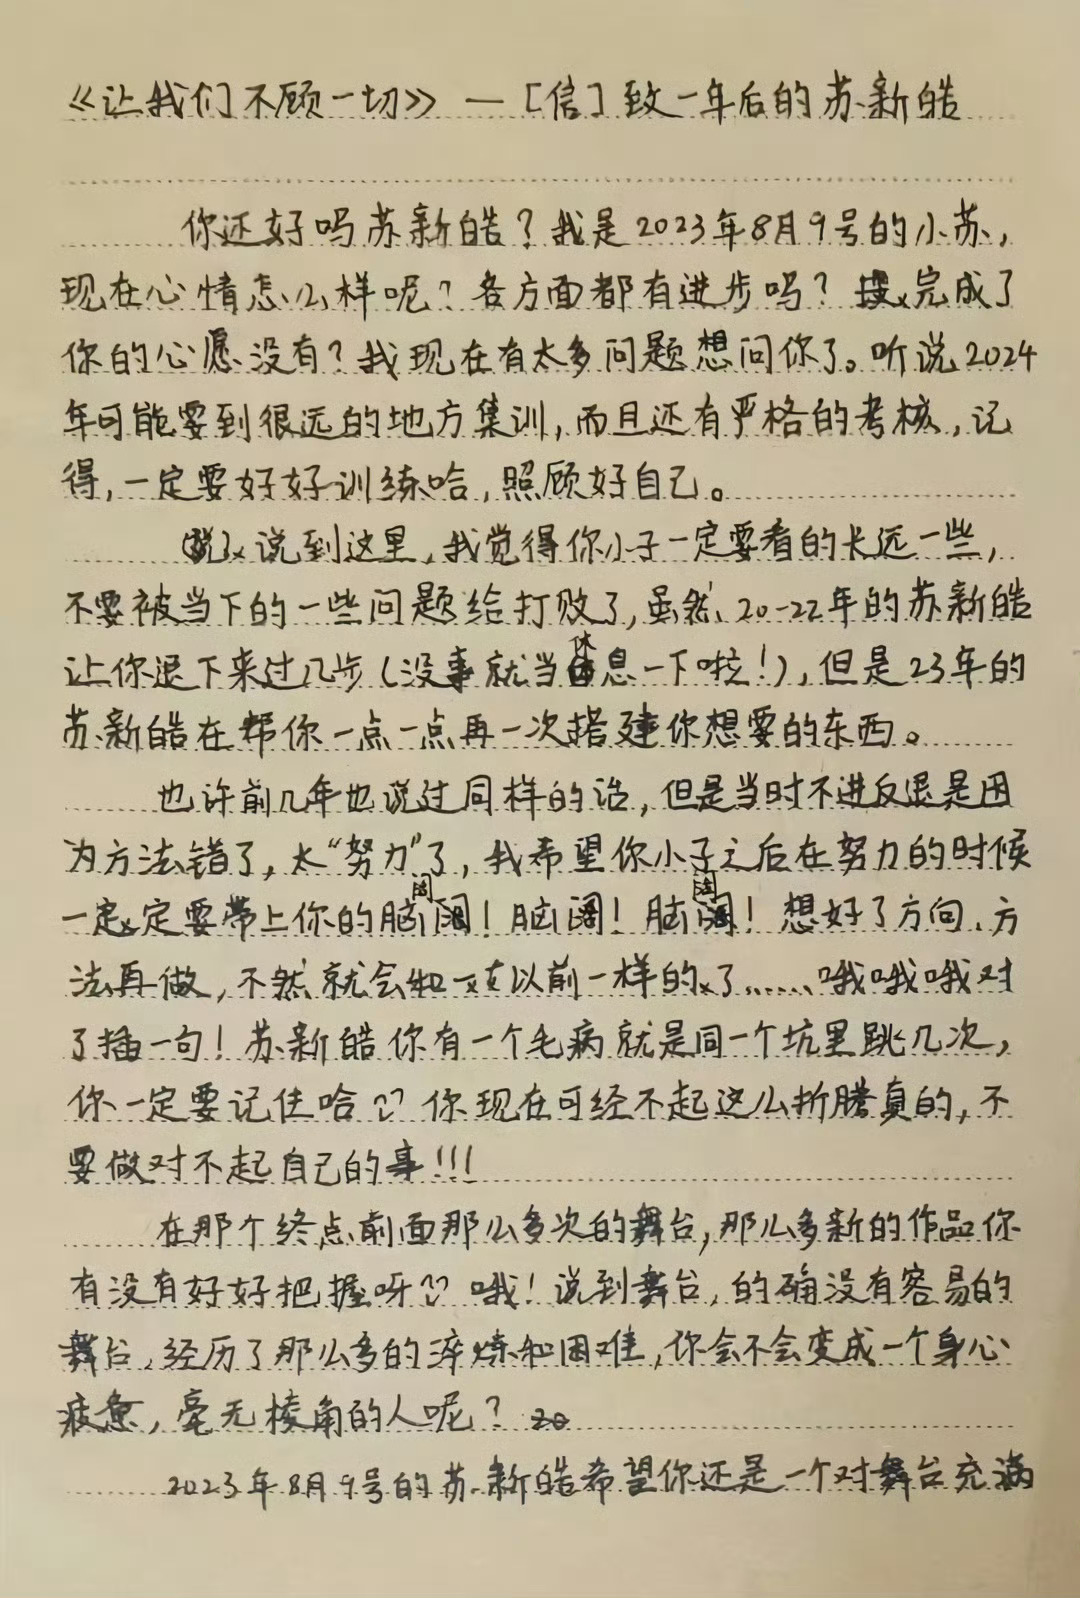 《让我们不顾一切》—[信]致一年后的苏新皓
你还好吗苏新皓？我是2023年8月9号的小苏，
现在心情怎么样呢？各方面都有进步吗？完成了
你的心愿没有？我现在有太多问题想问你了。听说2024
年可能要到很远的地方集训，而且还有严格的考核，记
得，一定要好好训练哈，照顾好自己。
说到这里，我觉得你小子一定要看的长远一些，
不要被当下的一些问题给打败了，虽然20-22年的苏新皓
让你退下来过几步（没事就当休息一下啦！），但是23年的
苏新皓在帮你一点一点再一次搭建你想要的东西。
也许前几年也说过同样的话，但是当时不进反退是因
为方法错了，太“努力”了，我希望你小子之后在努力的时候
一定定要带上你的脑阔！脑阔！脑阔！想好了方向、方
法再做，不然就会和以前一样的了……哦哦哦对
了插一句！苏新皓你有一个毛病就是同一个坑里跳几次，
你一定要记住哈？？你现在可经不起这么折腾真的，不
要做对不起自己的事！！！
在那个终点前面那么多次的舞台，那么多新的作品你
有没有好好把握呀？？哦！说到舞台，的确没有容易的
舞台，经历了那么多的淬炼和困难，你会不会变成一个身心
疲惫，毫无棱角的人呢？
2023年8月9号的苏新皓希望你还是一个对舞台充满